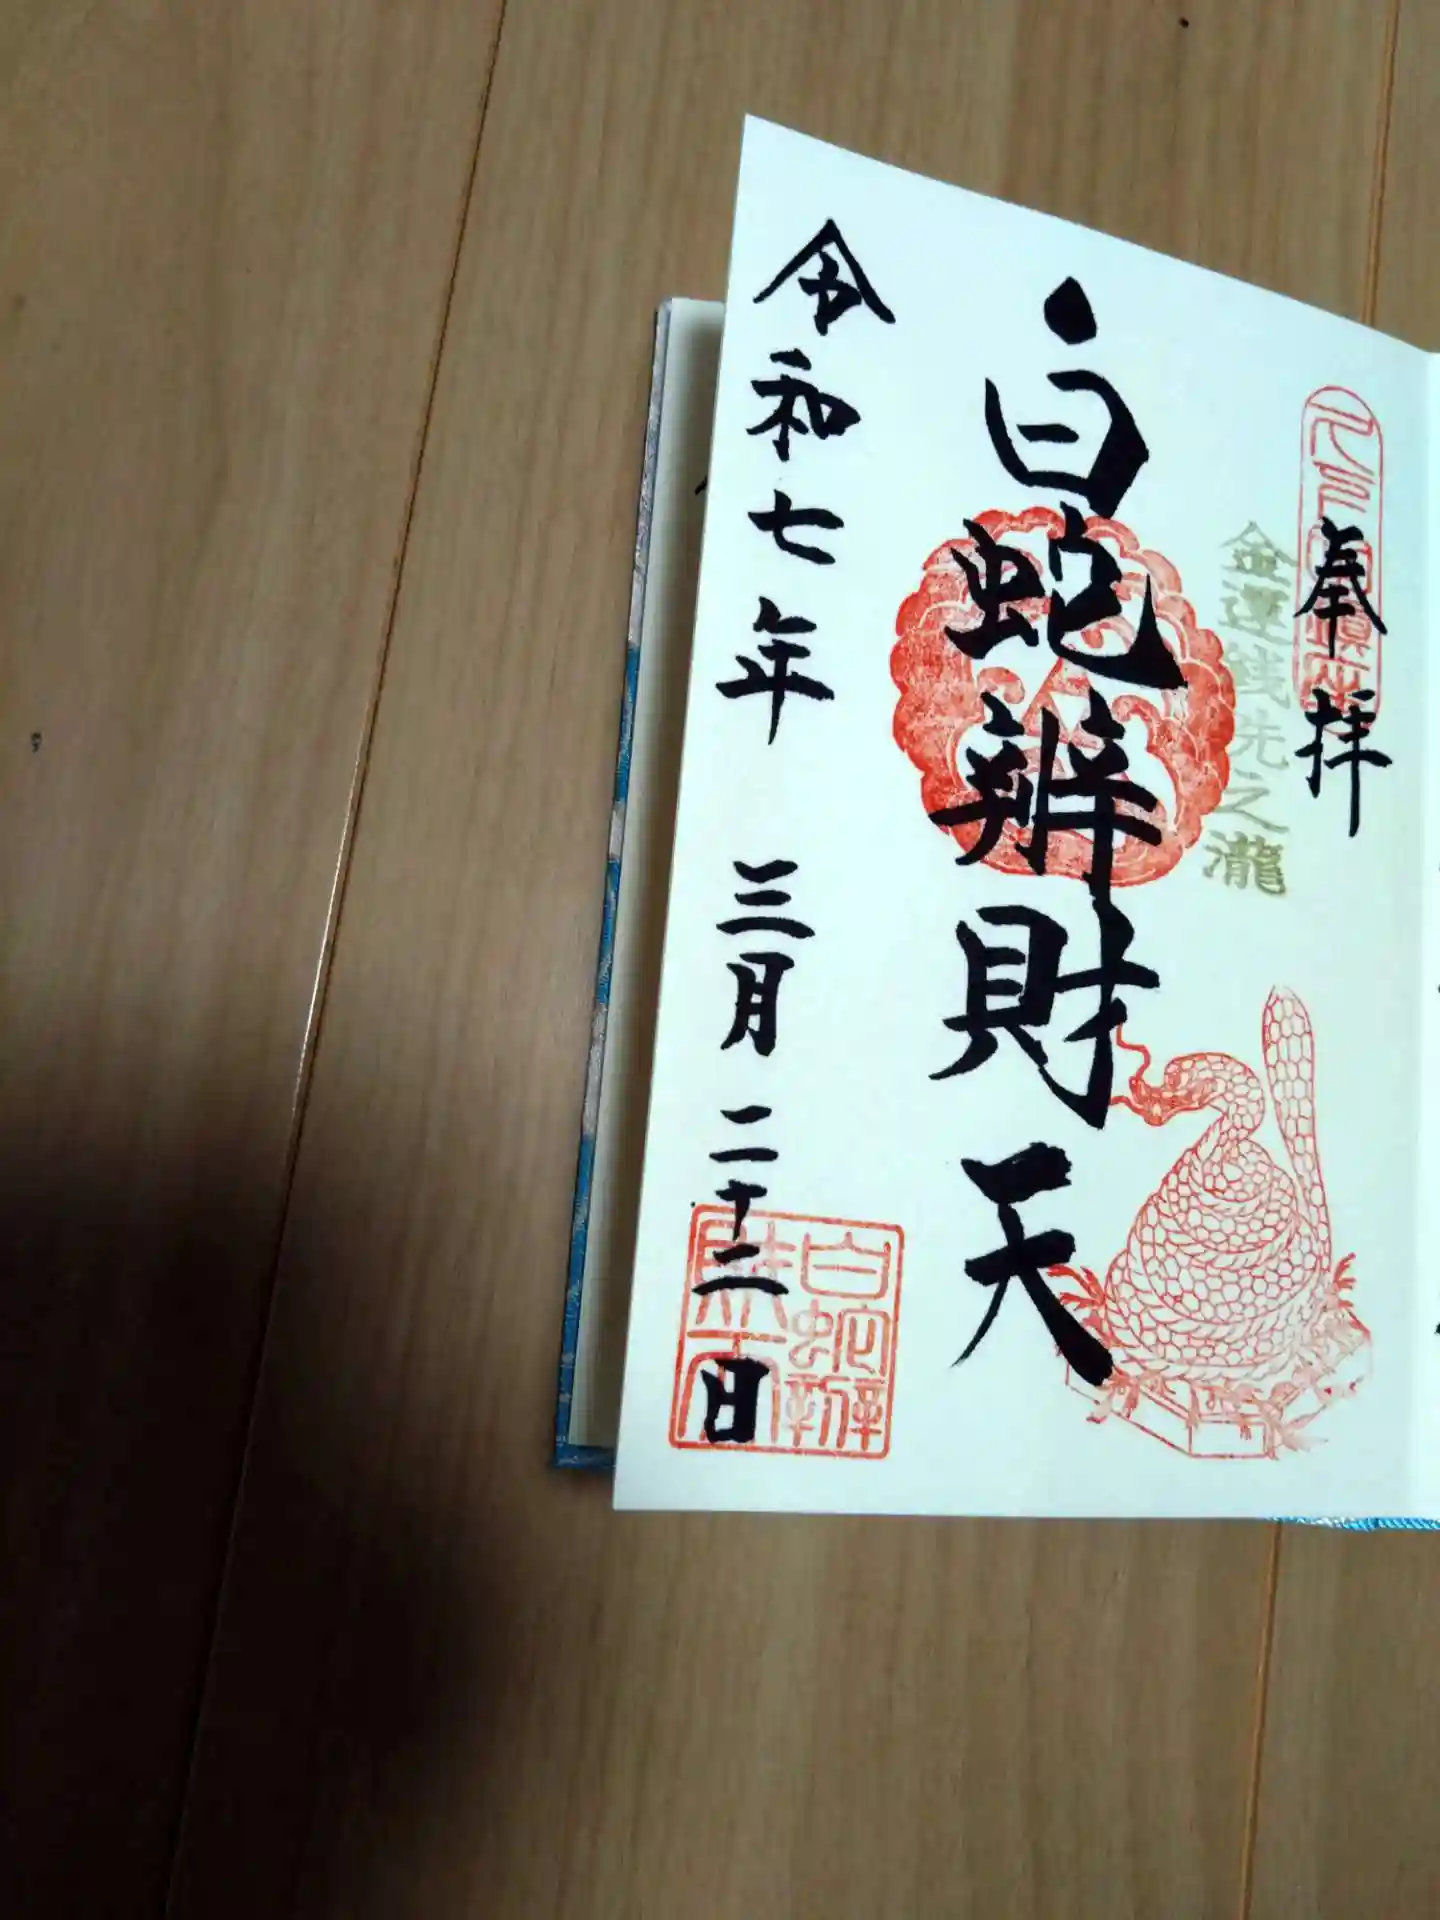 奉拝
金運銭洗之瀧
白蛇辨財天
令和七年 三月 二十二日
白蛇辯